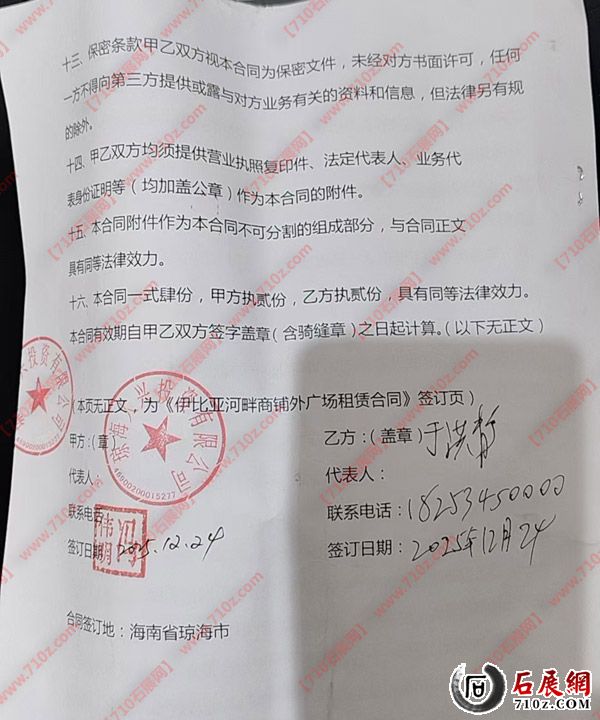 十三、保密条款甲乙双方视本合同为保密文件，未经对方书面许可，任何
一方不得向第三方提供或露与对方业务有关的资料和信息，但法律另有规
的除外。
十四、甲乙双方均须提供营业执照复印件、法定代表人、业务代
表身份证明等（均加盖公章）作为本合同的附件。
十五、本合同附件作为本合同不可分割的组成部分，与合同正文
具有同等法律效力。
十六、本合同一式肆份，甲方执贰份，乙方执贰份，具有同等法律效力。
本合同有效期自甲乙双方签字盖章（含骑缝章）之日起计算。（以下无正文）
投资有限公司
（本页无正文，为《伊比亚河畔商铺外广场租赁合同》签订页）
甲方：（章）
业投资有限公司
46900200015277
代表人：
联系电话
签订日期：2025.12.24
乙方：（盖章）于洪静
代表人：
联系电话：18253450000
签订日期：2025年12月24
合同签订地：海南省琼海市
【710石展网】
www.710z.com
石展網
710z.com